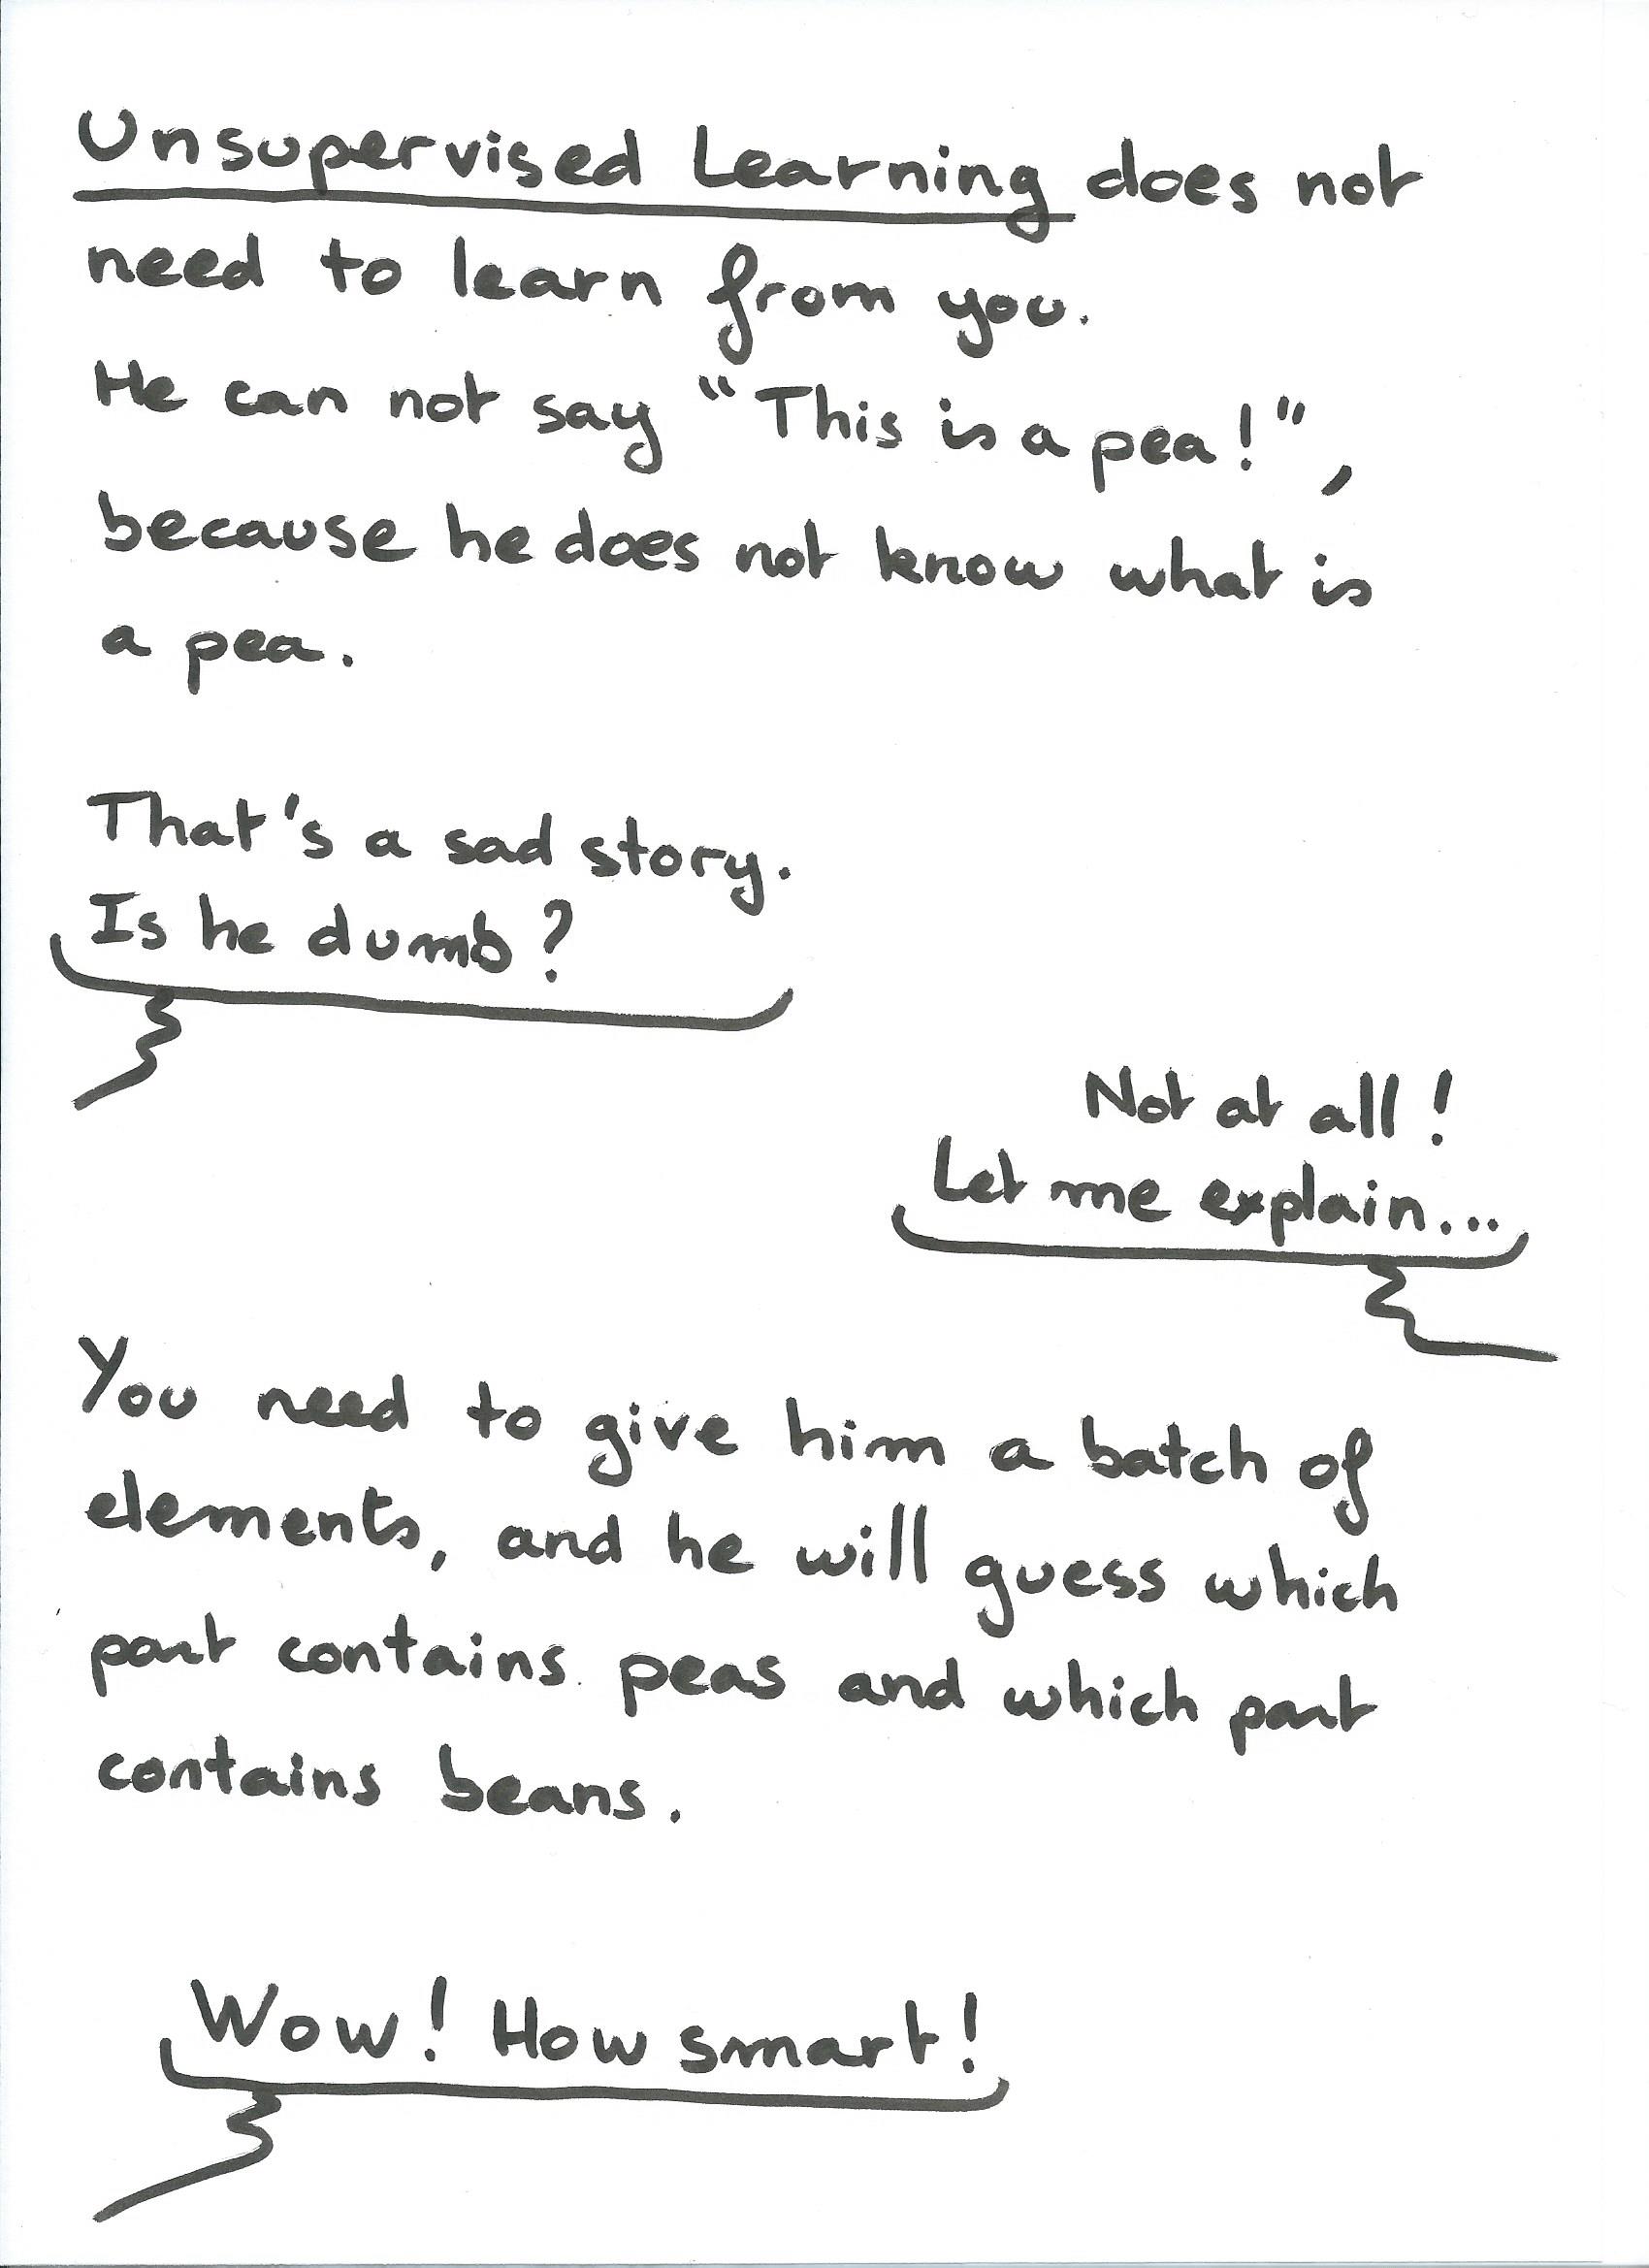 Unsupervised Learning does not
need to learn from you.
He can not say "This is a pea!",
because he does not know what is
a pea.
That's a sad story.
Is he dumb?
Not at all!
Let me explain...
You need to give him a batch of
elements, and he will guess which
part contains peas and which part
contains beans.
Wow! How smart!